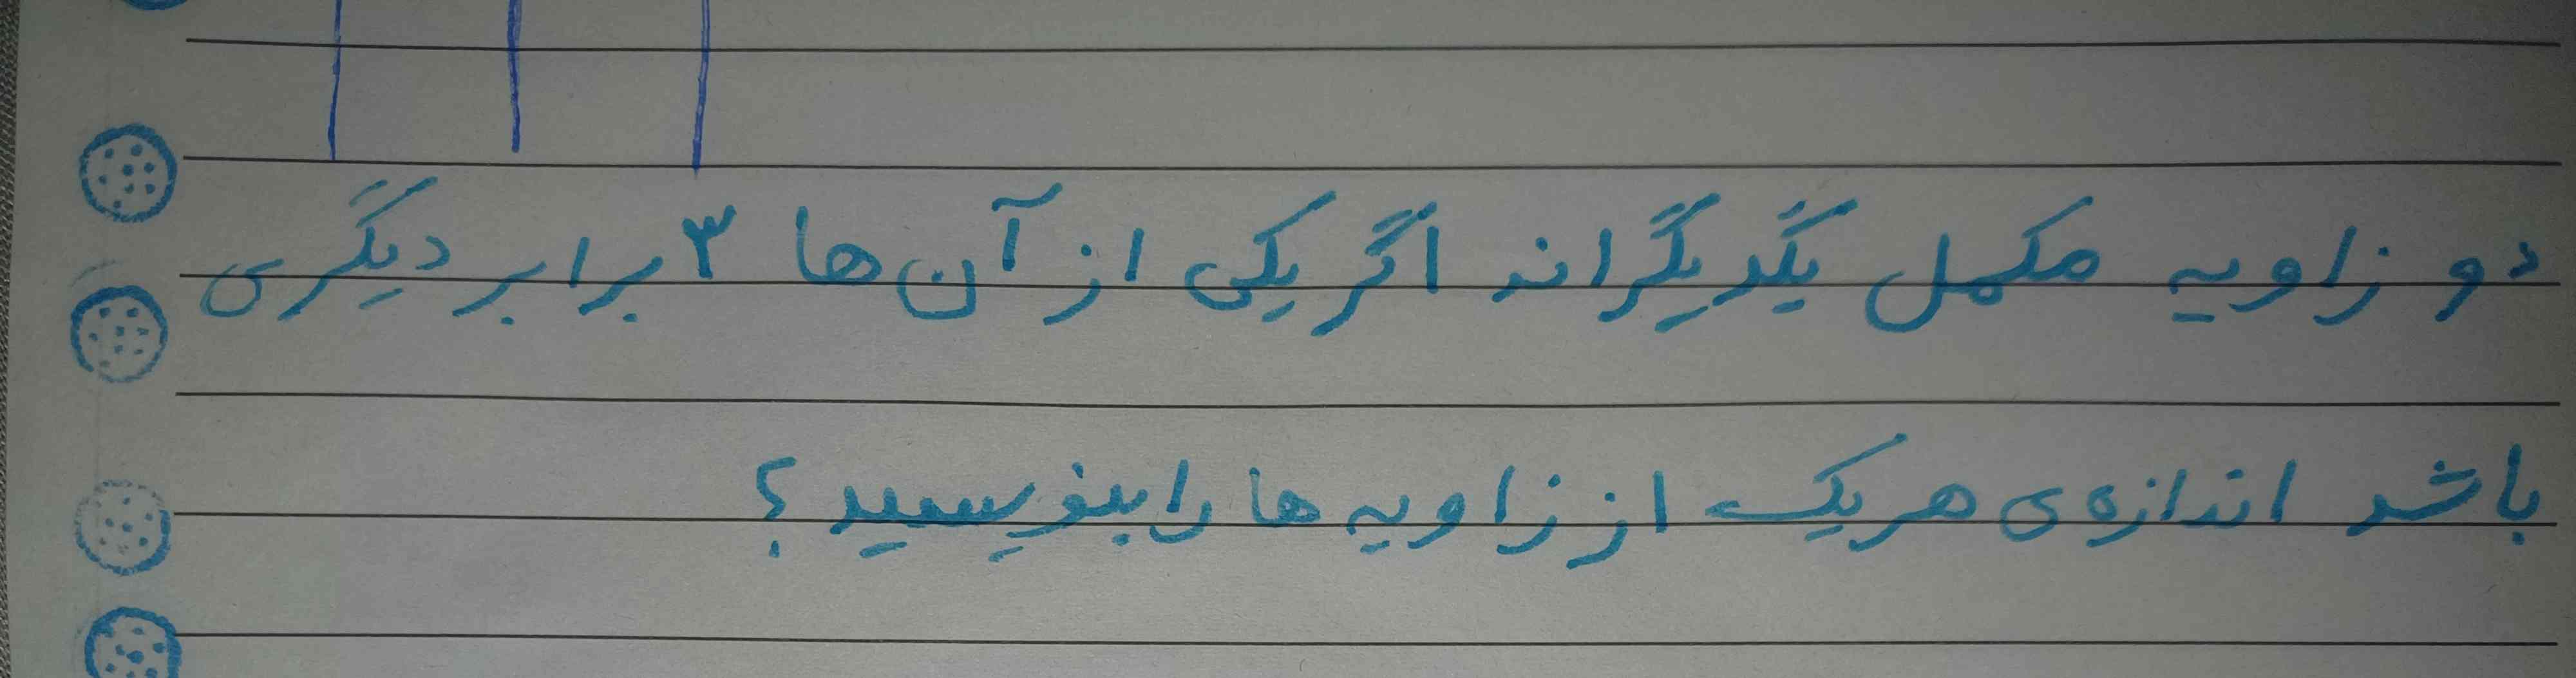 دو زاویه مکمل یگدیگراند اگر یکی از آن ها ۳ برابر دیگری
باشد اندازه ی هریک از زاویه ها را بنویسید؟